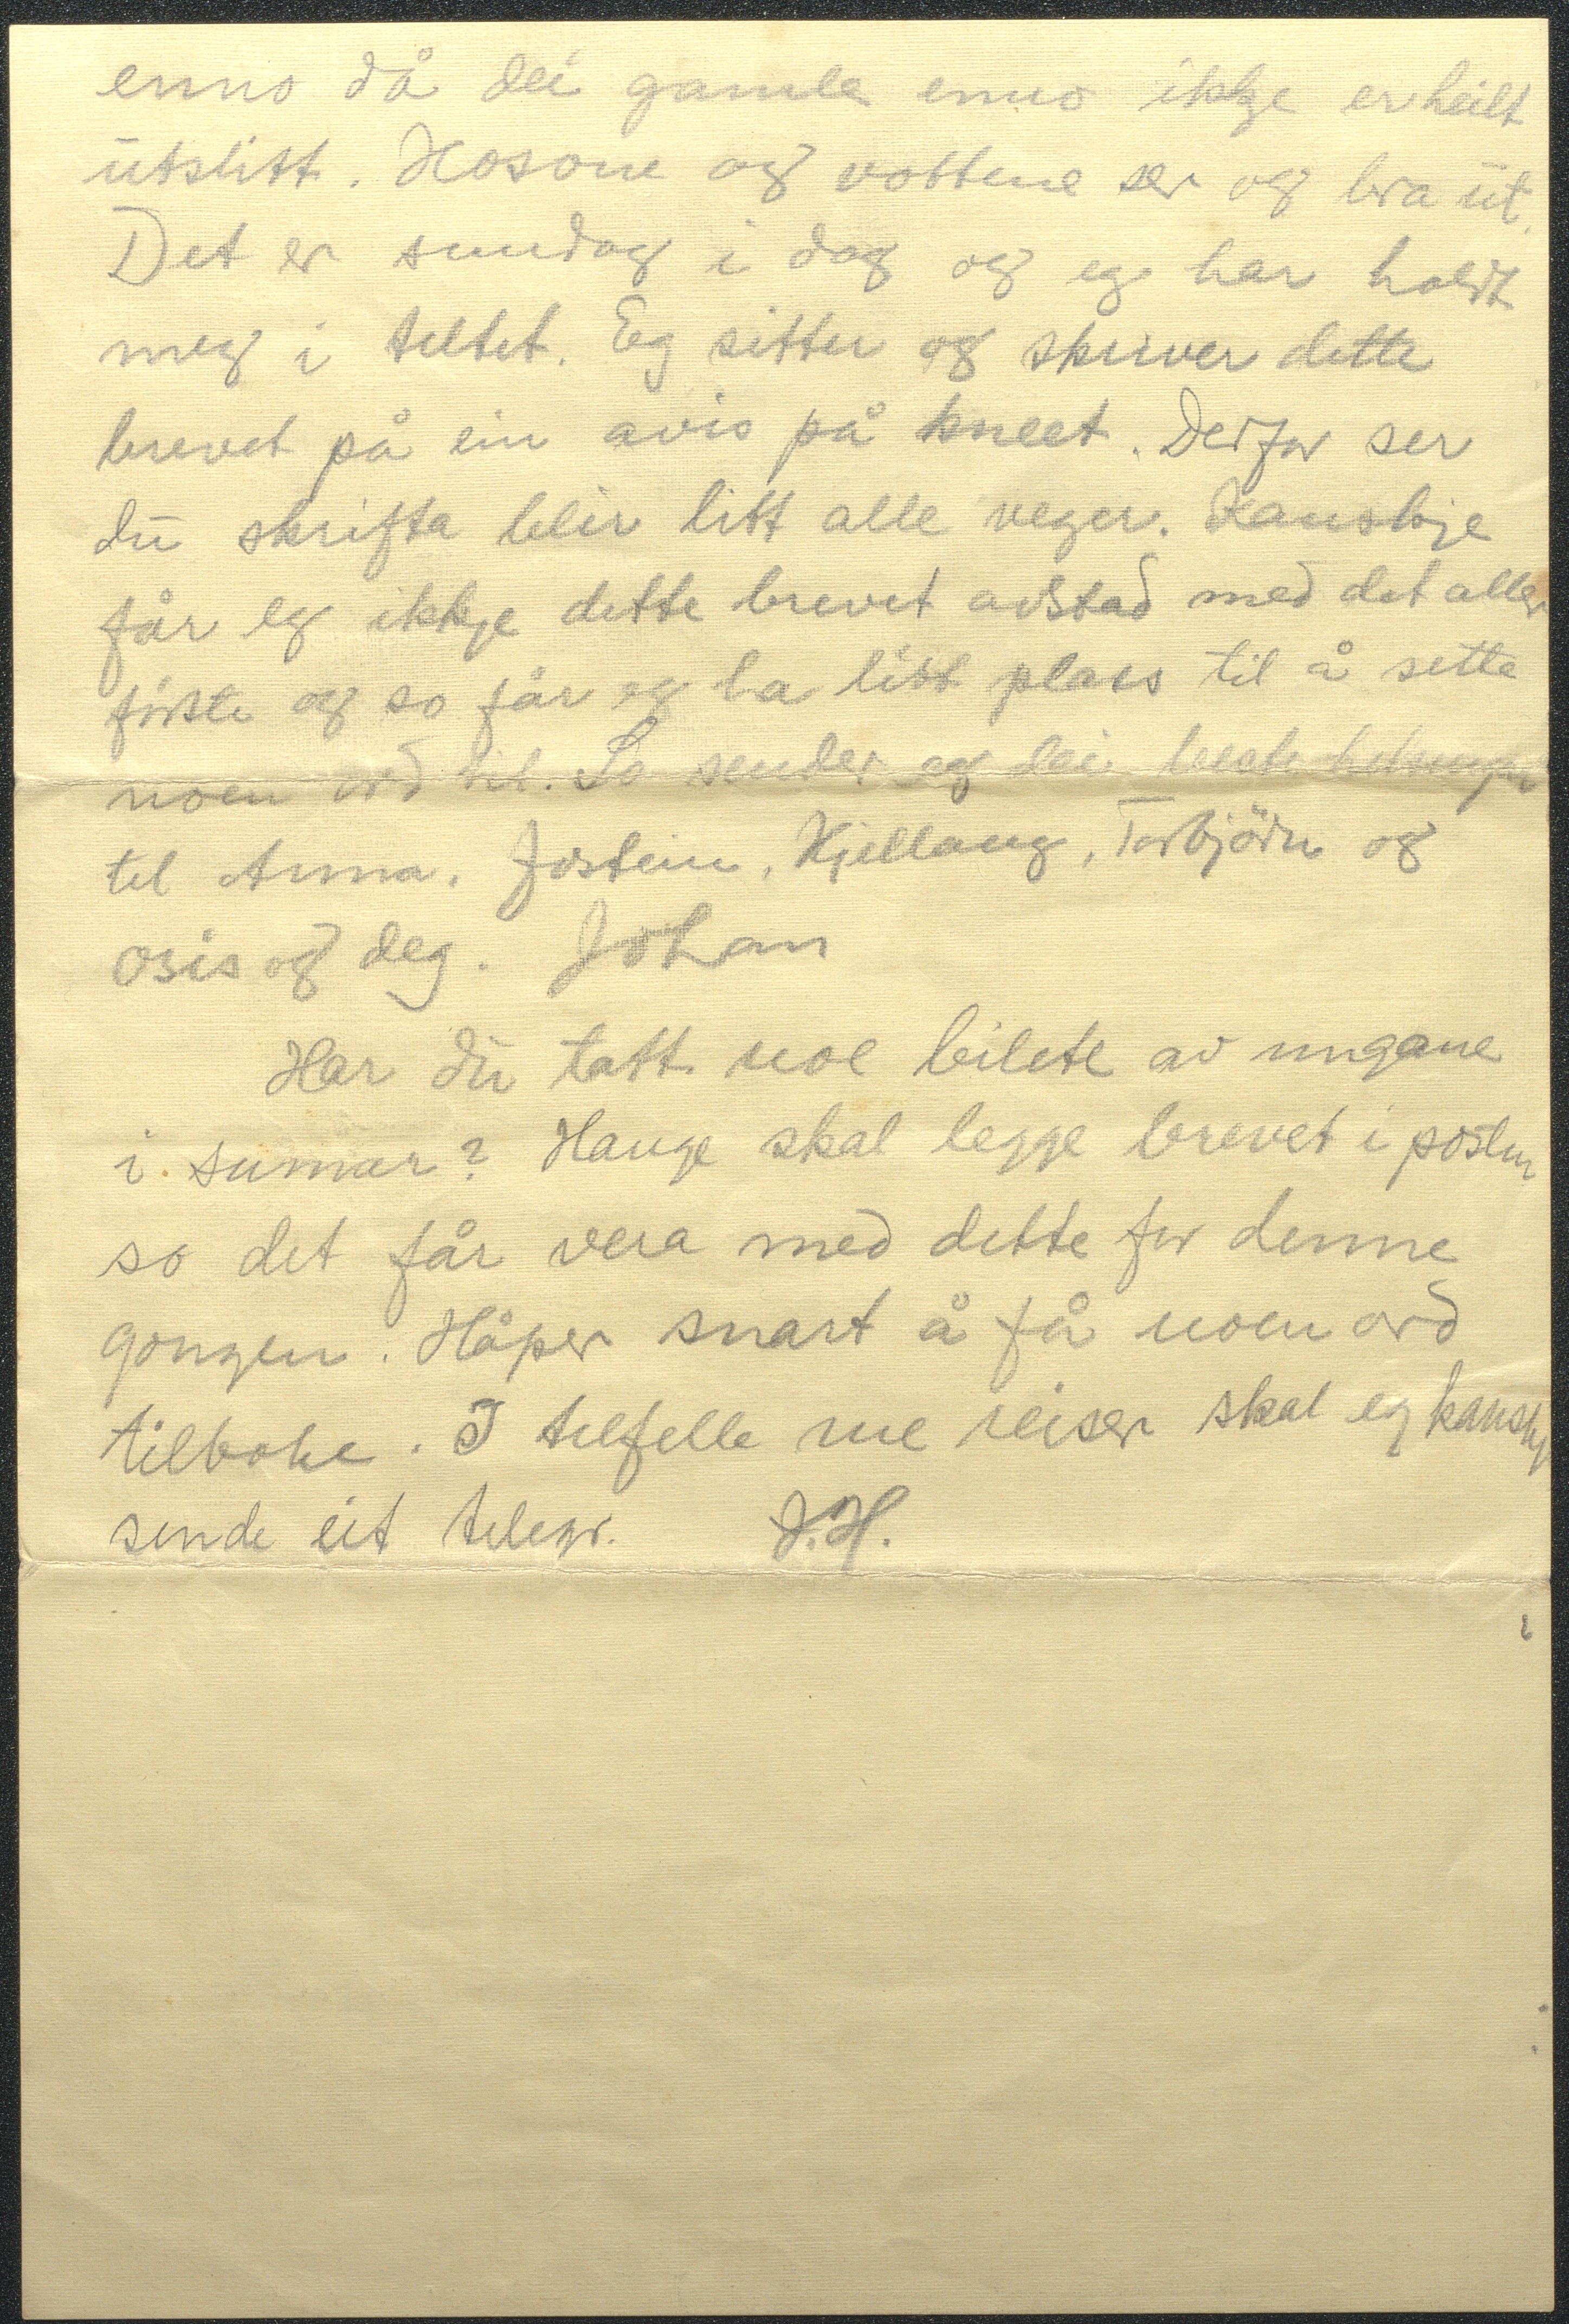 enno då dei gamle enno ikkje er heilt
utslitt. Hosone og vottene ser og bra ut.
Det er sundag i dag og eg har haldt
meg i teltet. Eg sitter og skriver dette
brevet på ein avis på kneet. Derfor ser
du skrifta blir litt alle veger. Kanskje
får eg ikkje dette brevet avstad med det aller
første og so får eg ha litt plass til å sette
noen ord til. So sender eg dei beste helsinger
til Anna, Jostein, Kjellaug, Torbjörn og
osis og deg. Johan
Har du tatt noe bilete av ungane
i sumar? Hauge skal legge brevet i posten
so det får vera med dette for denne
gongen. Håper snart å få noen ord
tilbake. I tilfelle me reiser skal eg kanskje
sende eit telegr. J.H.